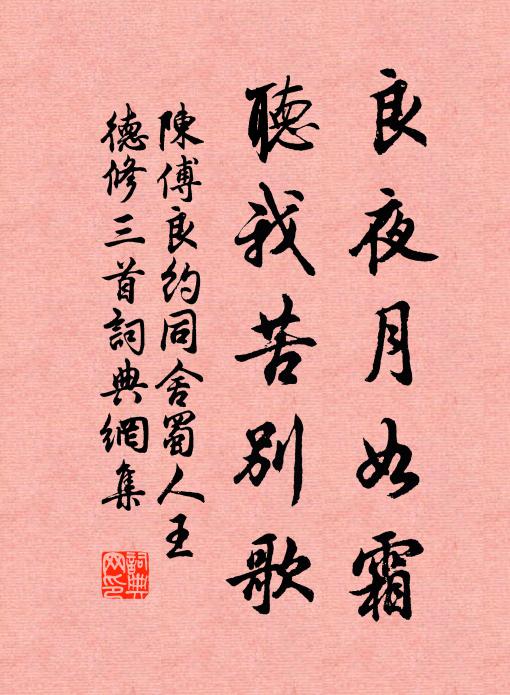 良夜月如霜
聽我苦別歌
陳傅良約同舍蜀人王
德修三首詞典網集
詞典网印